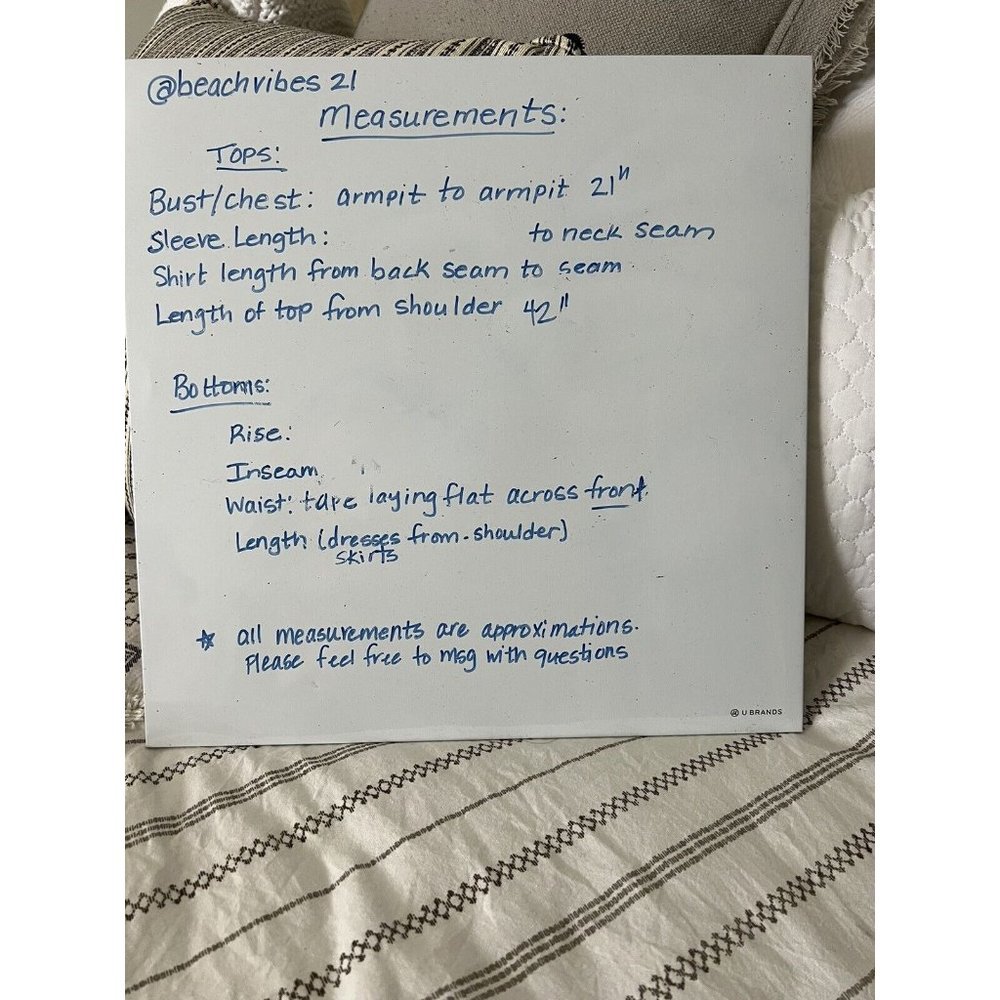 @beachvibes 21
Measurements:
Tops:
Bust/chest: armpit to armpit 21"
Sleeve Length: to neck seam
Shirt length from back seam to seam
Length of top from shoulder 42"
Bottoms:
Rise:
Inseam
Waist: tape laying flat across front.
Length (dresses from-shoulder)
skirts
☆ all measurements are approximations.
Please feel free to msg with questions
U BRANDS